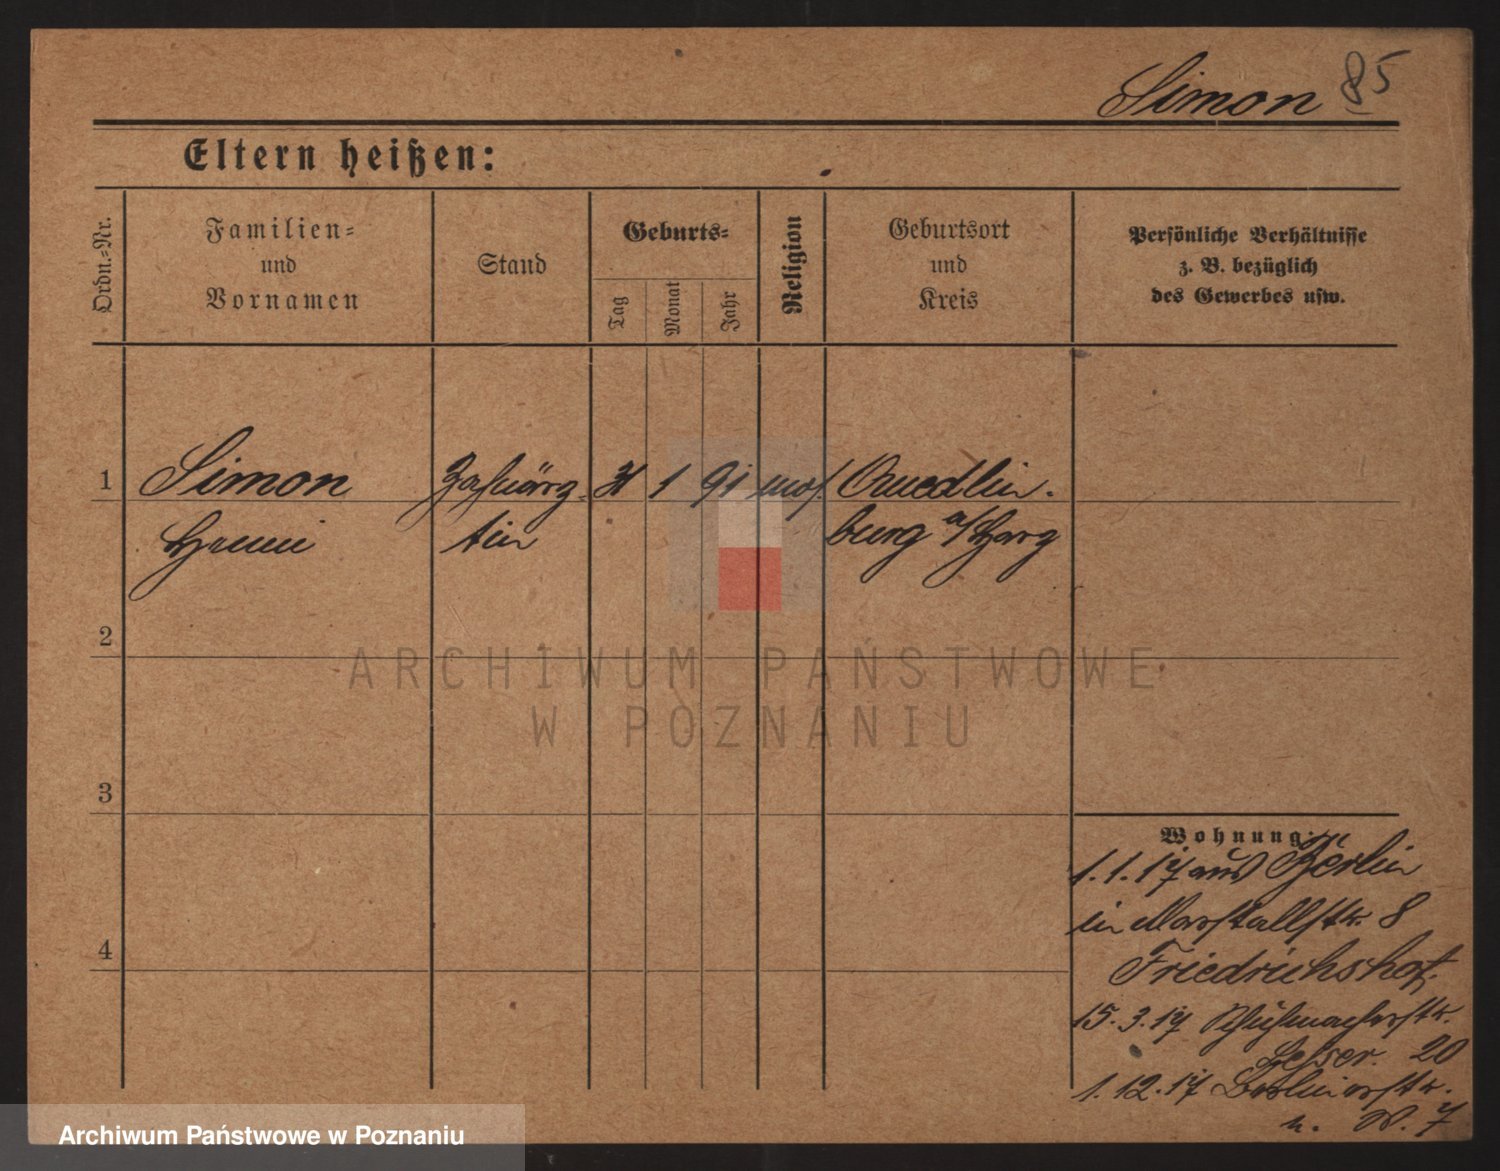 Simon 85
Eltern heißen:
Ordn.=Nr.
Familien=
und
Vornamen
Stand
Geburts=
Tag
Monat
Jahr
Religion
Geburtsort
und
Kreis
Persönliche Verhältnisse
z. B. bezüglich
des Gewerbes usw.
1 Simon Zahnärz- 1 91 mos. Quedlin-
Henni tin burg a/Harz
2
ARCHIWUM PAŃSTWOWE
W POZNANIU
3
Wohnung:
1.1.17 aus Berlin
in Marstallstr. 8
4
Friedrichshof.
15.3.17 Schuhmacherstr.
20
1.12.17 Berlinerstr.
N. 7
Archiwum Państwowe w Poznaniu